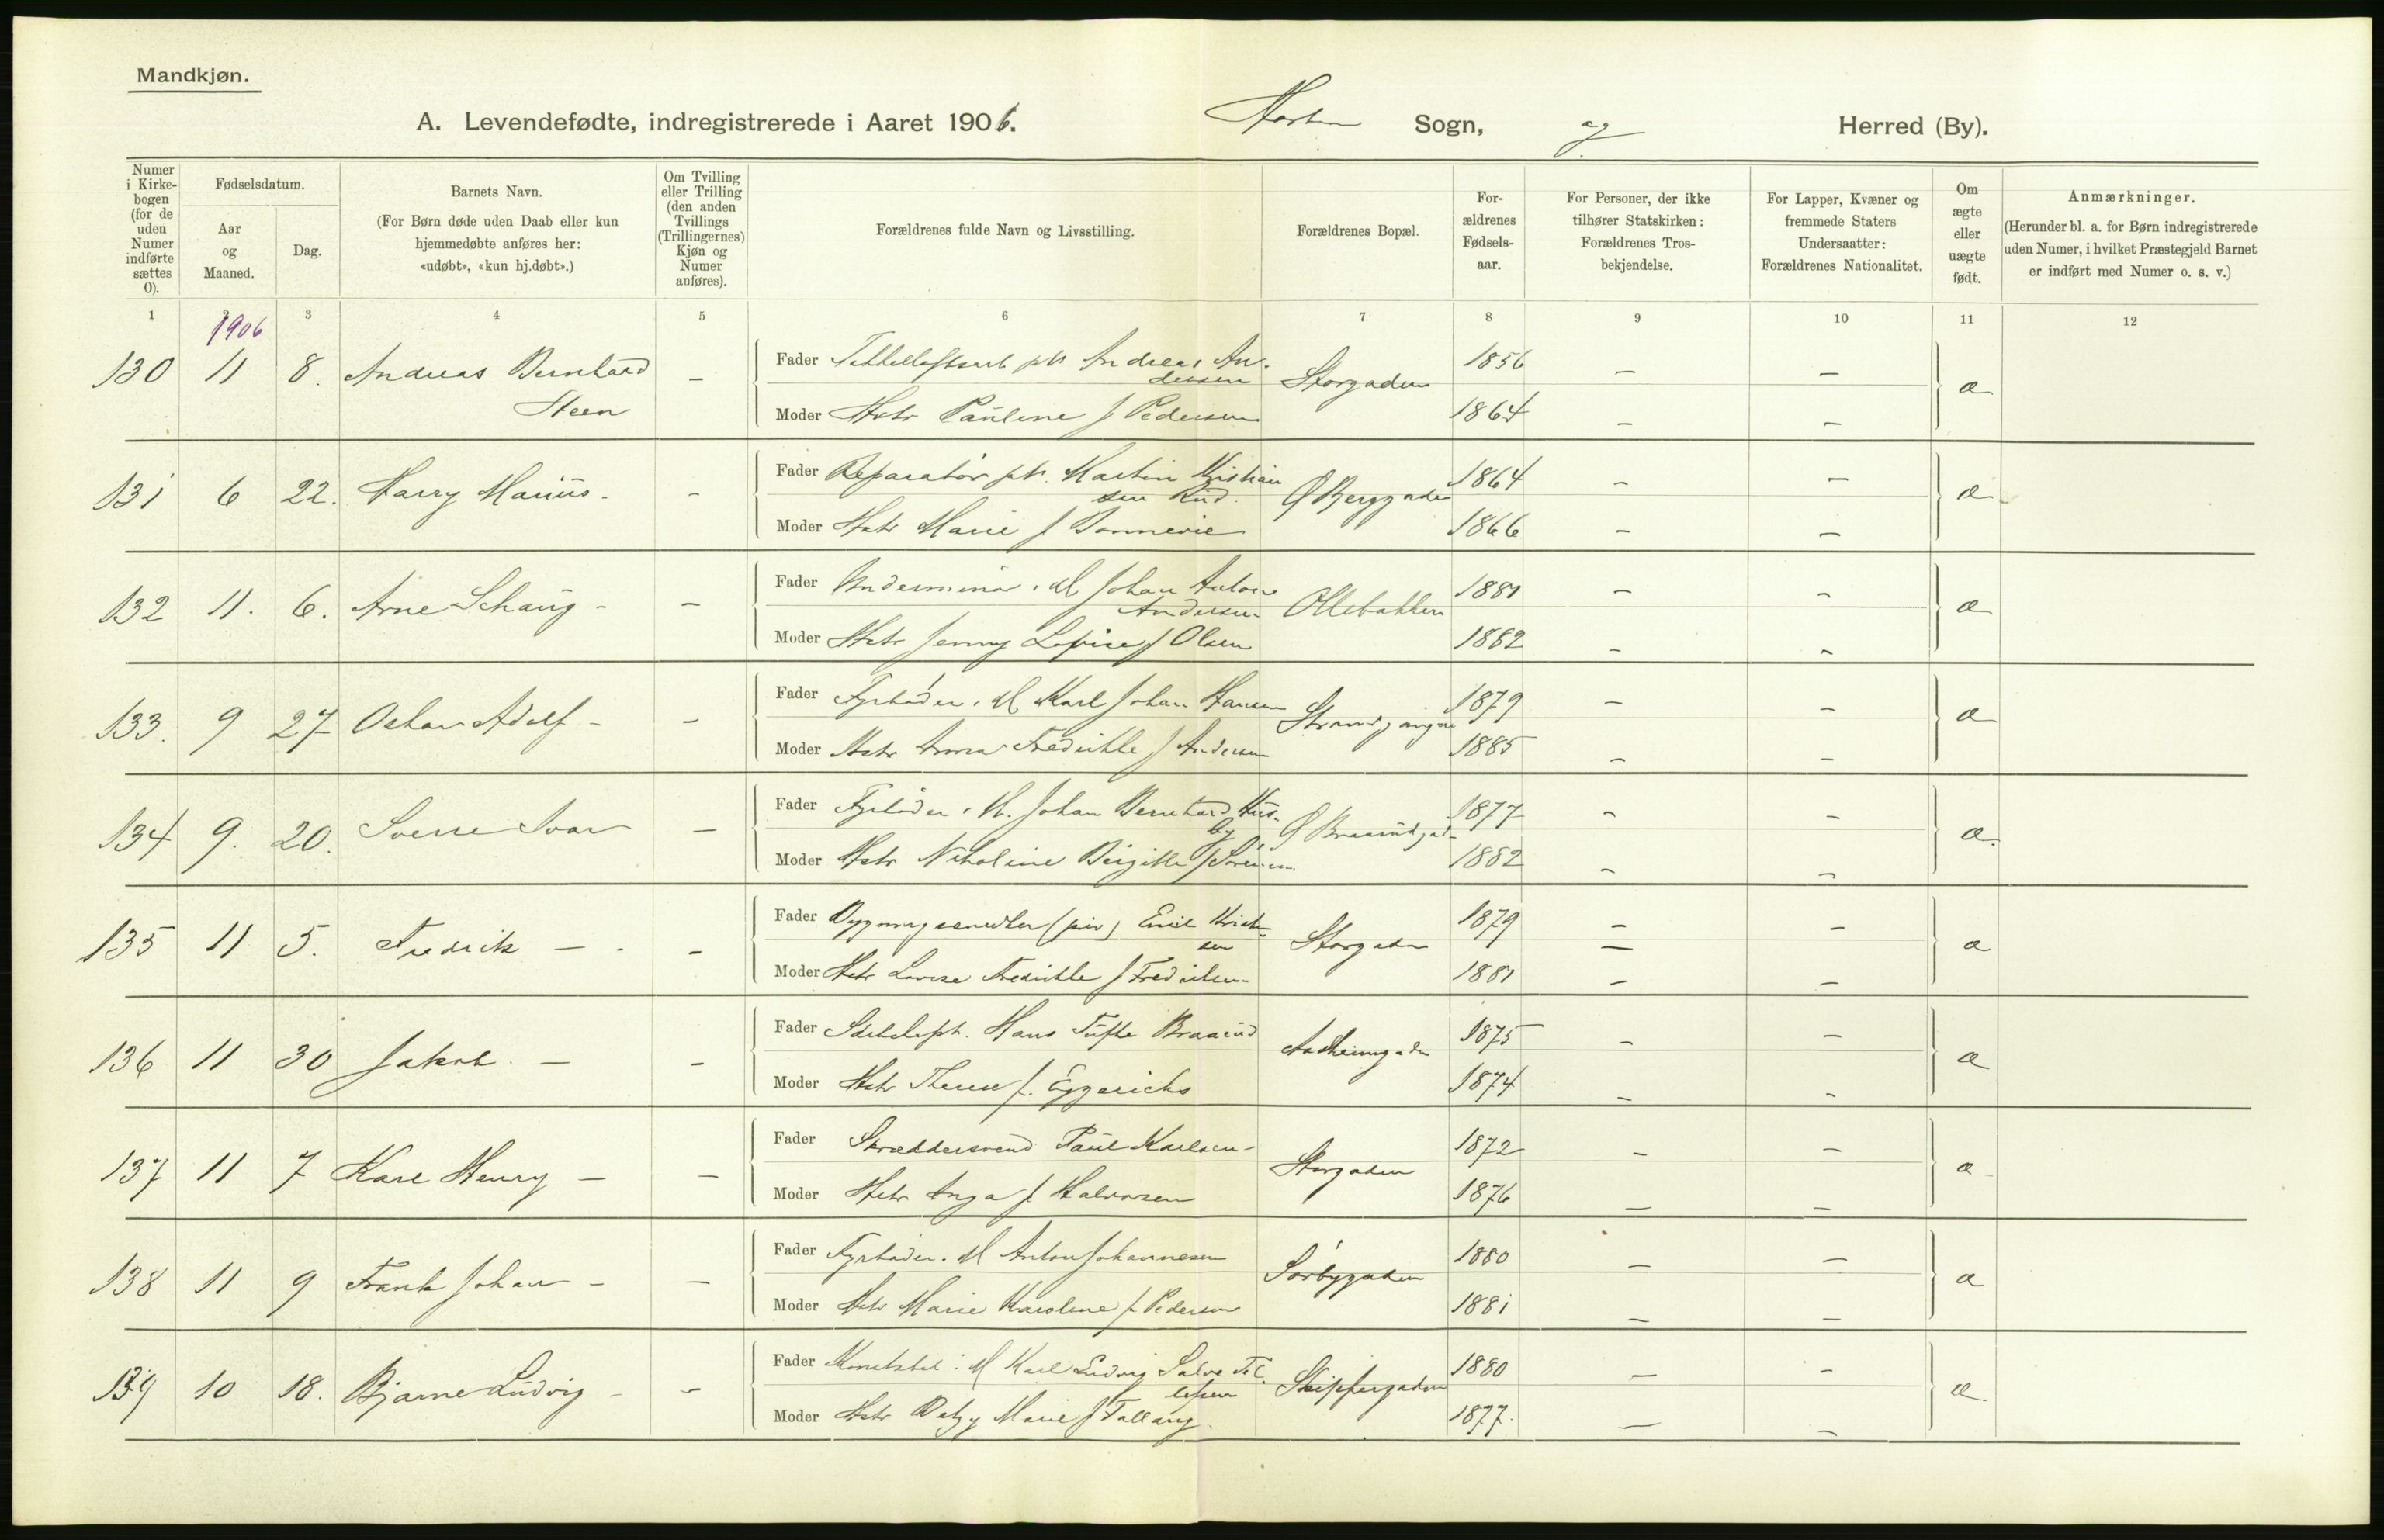 Mandkjøn.
A. Levendefødte, indregistrerede i Aaret 1906. Horten Sogn, og Herred (By).
Numer i Kirke-bogen (for de uden Numer indførte sættes 0).
Fødselsdatum.
Aar og Maaned.
Dag.
Barnets Navn.
(For Børn døde uden Daab eller kun hjemmedøbte anføres her: «udøbt», «kun hj.døbt».)
Om Tvilling eller Trilling (den anden Tvillings (Trillingernes) Kjøn og Numer anføres).
Forældrenes fulde Navn og Livsstilling.
Forældrenes Bopæl.
For-ældrenes Fødsels-aar.
For Personer, der ikke tilhører Statskirken: Forældrenes Tros-bekjendelse.
For Lapper, Kvæner og fremmede Staters Undersaatter: Forældrenes Nationalitet.
Om ægte eller uægte født.
Anmærkninger.
(Herunder bl. a. for Børn indregistrerede uden Numer, i hvilket Præstegjeld Barnet er indført med Numer o. s. v.)
1 2 3 4 5 6 7 8 9 10 11 12
1906
130 11 8. Andreas Bernhard Steen –
Fader Andreas Andersen Storgaden 1856 – – æ
Moder Hstr Pauline f Pedersen 1864 – –
131 6 22. Harry Marius. –
Fader Reparatør Martin Kristiansen Rud. Ø Berggaden 1864 – – æ
Moder Hstr Marie f Bonnevie 1866 – –
132 11. 6. Arne Schaug – –
Fader Underminør. M Johan Anton Andersen Ollebakken 1881 – – æ
Moder Hstr Jenny Lovise f Olsen 1882 – –
133. 9 27 Oskar Adolf – –
Fader Fyrbøder. M Karl Johan Hansen 1879 – – æ
Moder Hstr Fredrikke f Andersen 1885 – –
134 9. 20. Sverre Ivar –
Fader Fyrbøder. M. Johan Bernhard Husby Ø Braarudgad 1877 – – æ.
Moder Hstr Nikoline Birgitte f Sørensen 1882 – –
135 11 5. Fredrik – – –
Fader Bygningssnedker (priv) Emil Kristensen Storgaden 1879 – – æ
Moder Hstr Lovise Fredrikke f Fredriksen 1881 – –
136 11 30 Jakob. – –
Fader Hans Tufte Braarud 1875 – – æ
Moder Hstr Therese f. Eggerichs 1874 – –
137 11 7 Kare Henry – –
Fader Skræddersvend Paul Karlsen – Storgaden 1872 – – æ
Moder Hstr Inga f Halvorsen 1876 – –
138 11 9 Frank Johan – –
Fader Fyrbøder. M Anton Johannesen Sørbygaden 1880 – – æ
Moder Hstr Marie Karoline f Pedersen 1881 – –
139 10 18. Bjarne Ludvig – –
Fader Konstabel i M Karl Ludvig Salve Tellefsen Skippergaden 1880 – – æ.
Moder Hstr Betzy Marie f Tallaug. 1877. – –